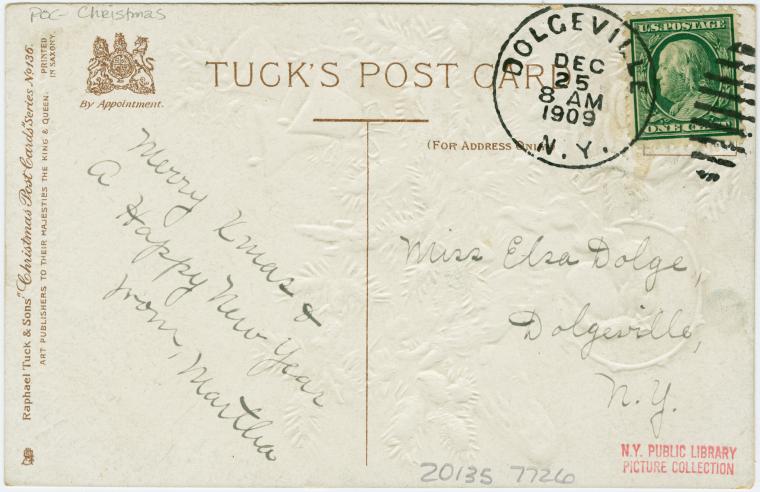 POC- Christmas
Raphael Tuck & Sons' "Christmas Post Cards" Series No 136.
ART PUBLISHERS TO THEIR MAJESTIES THE KING & QUEEN.
PRINTED
IN SAXONY.
By Appointment.
TUCK'S POST CARD
(FOR ADDRESS ONLY)
DOLGEVILLE
DEC
25
8 AM
1909
N.Y.
U.S. POSTAGE
ONE CENT
Merry Xmas &
A Happy New Year
from, Martha
Miss Elsa Dolge,
Dolgeville,
N.Y.
N.Y. PUBLIC LIBRARY
PICTURE COLLECTION
20135 7726